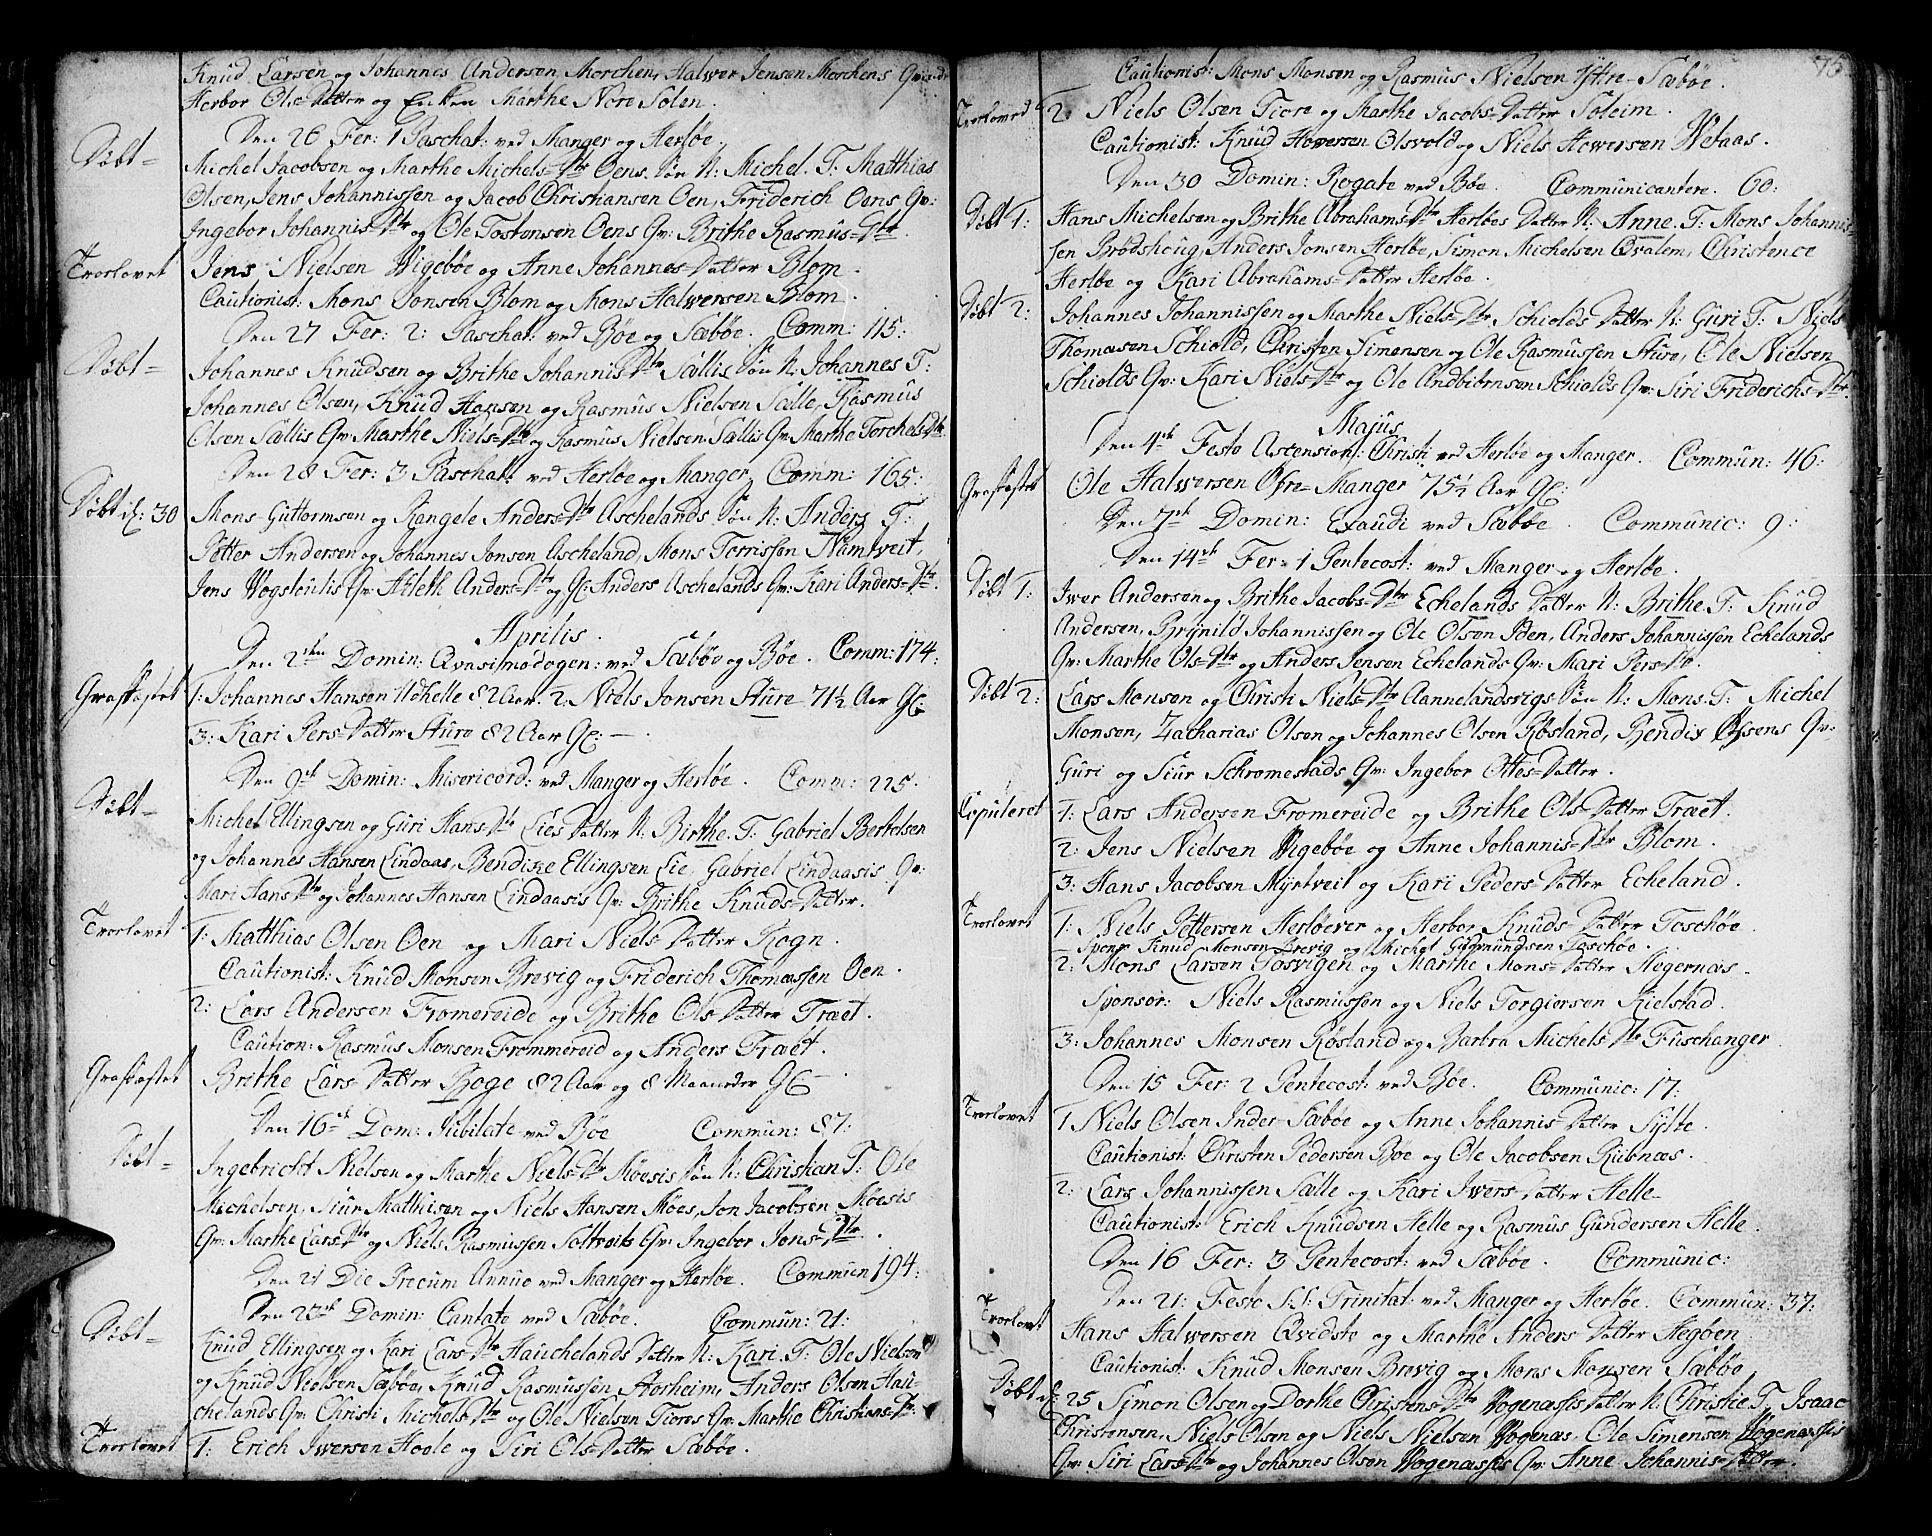 Knud Larsen og Johannes Andersen Morchen, Halwer Jensen Morchens Qvinde
Herbor Ols-Datter og Enken Marthe Nore Solen.
Den 26 Fer: 1 Paschat: ved Manger og Herløe.
Døbt =
Michel Jacobsen og Marthe Michels-Dtr Oens Søn N: Michel. T: Matthias
Olsen, Jens Johannissen og Jacob Christiansen Oen, Friderich Oens Qv:
Ingebor Johannis Dtr og Ole Tostensen Oens Qv: Brithe Rasmus-Dtr.
Troelovet Jens Nielsen Wigebøe og Anne Johannes-Datter Blom.
Cautionist: Mons Jonsen Blom og Mons Halwersen Blom.
Den 27 Fer: 2: Paschat: ved Bøe og Sæbøe. Comm: 115:
Døbt =
Johannes Knudsen og Brithe Johannis Dtr Sællis Søn N: Johannes T:
Johannes Olsen, Knud Hansen og Rasmus Nielsen Sælle, Rasmus
Olsen Sællis Qv: Marthe Niels-Dtr og Rasmus Nielsen Sællis Qv: Marthe Torchels Dtr
Den 28 Fer: 3 Paschat: ved Herløe og Manger Comm: 165:
Døbt d: 30 Mons Guttormsen og Rangele Anders-Dtr Aschelands Søn N: Anders T:
Petter Andersen og Johannes Jonsen Ascheland, Mons Torrissen Namtveit,
Jens Wogsløutis Qv: Adleth Anders-Dtr og Gl: Anders Aschelands Qv: Kari Anders-Dtr.
Aprilis.
Den 2den Domin: Qvasimodogen: ved Sæbøe og Bøe. Comm: 174:
Grafkastet 1: Johannes Hansen Udhelle 82 Aar. 2: Niels Jonsen Sture 71½ Aar Gl:
3: Kari Pers-Datter Sture 82 Aar Gl: —
Den 9de Domin: Misericord: ved Manger og Herløe. Comm: 225.
Døbt =
Michel Ellingsen og Guri Hans Dtr Lies Datter N: Birthe. T: Gabriel Bertelsen
og Johannes Hansen Lindaas, Bendixe Ellingsen Lie, Gabriel Lindaasis Qv:
Mari Hans Dtr og Johannes Hansen Lindaasis Qv: Brithe Knuds-Datter.
Troelovet 1: Matthias Olsen Oen og Mari Niels Datter Rogn.
Cautionist: Knud Monsen Brevig og Friderich Thomassen Oen.
2: Lars Andersen Fromereide og Brithe Ols-Datter Træet.
Caution: Rasmus Monsen Frommereid og Anders Træet.
Grafkastet Brithe Lars-Datter Boge 82 Aar og 8 Maaneder Gl —
Den 16de Dom: Jubilate ved Bøe Commun: 87:
Døbt =
Ingebricht Nielsen og Marthe Niels-Dtr Møesis Søn N: Christian T: Ole
Michelsen, Siur Matthisen og Niels Hansen Møes, Jon Jacobsen Møesis
Qv: Marthe Lars-Dtr og Niels Rasmussen Soltveits Qv: Ingebor Jons-Dtr.
Den 21 Die Precum Annuo ved Manger og Herløe. Commun 194:
Den 23de Domin: Cantate ved Sæbøe. Commun: 21:
Døbt =
Knud Ellingsen og Kari Lars-Dtr Hauchelands Datter N: Kari. T: Ole Nielsen
og Knud Nielsen Sæbøe, Knud Rasmussen Storheim, Anders Olsen Hau-
chelands Qv: Christi Michels Dtr og Ole Nielsen Tiores Qv: Marthe Christians-Dtr
Troelovet 1: Erich Iwersen Hoole og Siri Ols-Datter Sæbøe.
75
Cautionist: Mons Monsen og Rasmus Nielsen Yttre-Sæbøe.
Troelovede 2: Niels Olsen Tiore og Marthe Jacobs-Datter Soleim.
Cautionist: Knud Howersen Olsvold og Niels Howersen Wetaas.
Den 30 Domin: Rogate ved Bøe. Communicantere. 60:
Døbt 1: Hans Michelsen og Brithe Abrahams-Dtr Herløes Datter N: Anne. T: Mons Johannis-
sen Brødshoug, Anders Jonsen Herløe, Simon Michelsen Qvalem, Christence
Herløe og Kari Abrahams-Datter Herløe.
Døbt 2: Johannes Johannissen og Marthe Niels-Dtr Schiolds Datter N: Guri T: Niels
Thomasen Schiold, Christen Simensen og Ole Rasmussen Sture, Ole Nielsen
Schiolds Qv: Kari Niels-Dtr og Ole Andbiørnsen Schiolds Qv: Siri Friderichs-Dtr.
Majus
Den 4de Festo Ascension: Christi ved Herløe og Manger. Commun: 46:
Grafkastet Ole Halwersen Øfre-Manger 75½ Aar Gl:
Den 7de Domin: Exaudi ved Sæbøe. Communic: 9:
Den 14de Fer: 1 Pentecost: ved Manger og Herløe.
Døbt 1: Iwer Andersen og Brithe Jacobs-Dtr Echelands Datter N: Brithe. T: Knud
Andersen, Brynild Johannissen og Ole Olsen Iden, Anders Johannissen Echelands
Qv: Marthe Ols-Dtr og Anders Jensen Echelands Qv: Mari Pers-Dtr.
Døbt 2: Lars Monsen og Christi Niels-Dtr Aannelandsvigs Søn N: Mons. T: Michel
Monsen, Zacharias Olsen og Johannes Olsen Røsland, Bendix Olsens Qv:
Guri og Siur Schromestads Qv: Ingebor Ottes-Datter.
Copuleret 1: Lars Andersen Fromereide og Brithe Ols-Datter Træet.
2: Jens Nielsen Wigebøe og Anne Johannis-Dtr Blom.
3: Hans Jacobsen Myrtveit og Kari Peders-Datter Echeland.
Troelovet 1: Niels Pettersen Herløever og Herbor Knuds-Datter Toschøe.
Spons: Knud Monsen Brevig og Michel Gudmundsen Toschøe.
2: Mons Larsen Tosvigen og Marthe Mons-Datter Hegernæs.
Sponsor: Niels Rasmussen og Niels Torgiersen Kielstad.
3: Johannes Monsen Røsland og Barbra Michels Dtr Fuschanger.
Den 15 Fer: 2 Pentecost: ved Bøe. Communic: 17:
Troelovet 1 Niels Olsen Inder-Sæbøe og Anne Johannis-Datter Sylte.
Cautionist: Christen Pedersen Bøe og Ole Jacobsen Rubnæs.
2: Lars Johannissen Sælle og Kari Iwers-Datter Helle.
Cautionist: Erich Knudsen Helle og Rasmus Gundersen Helle.
Den 16 Fer: 3 Pentecost: ved Sæbøe. Communic:
Den 21: Festo S.S: Trinitat: ved Manger og Herløe. Commun: 37:
Troelovt Hans Halwersen Qvidste og Marthe Anders Datter Hegøen
Cautionist: Knud Monsen Brevig og Mons Monsen Sæbøe.
Døbt d: 25 Simon Olsen og Dorthe Christens-Dtr Wogenæssis Datter N: Christie T: Isaac
Christensen, Niels Olsen og Niels Nielsen Wogenæs, Ole Simensen Wogenæssis
Qv: Siri Lars-Dtr og Johannes Olsen Wogenæssis Qv: Anne Johannis-Datter.